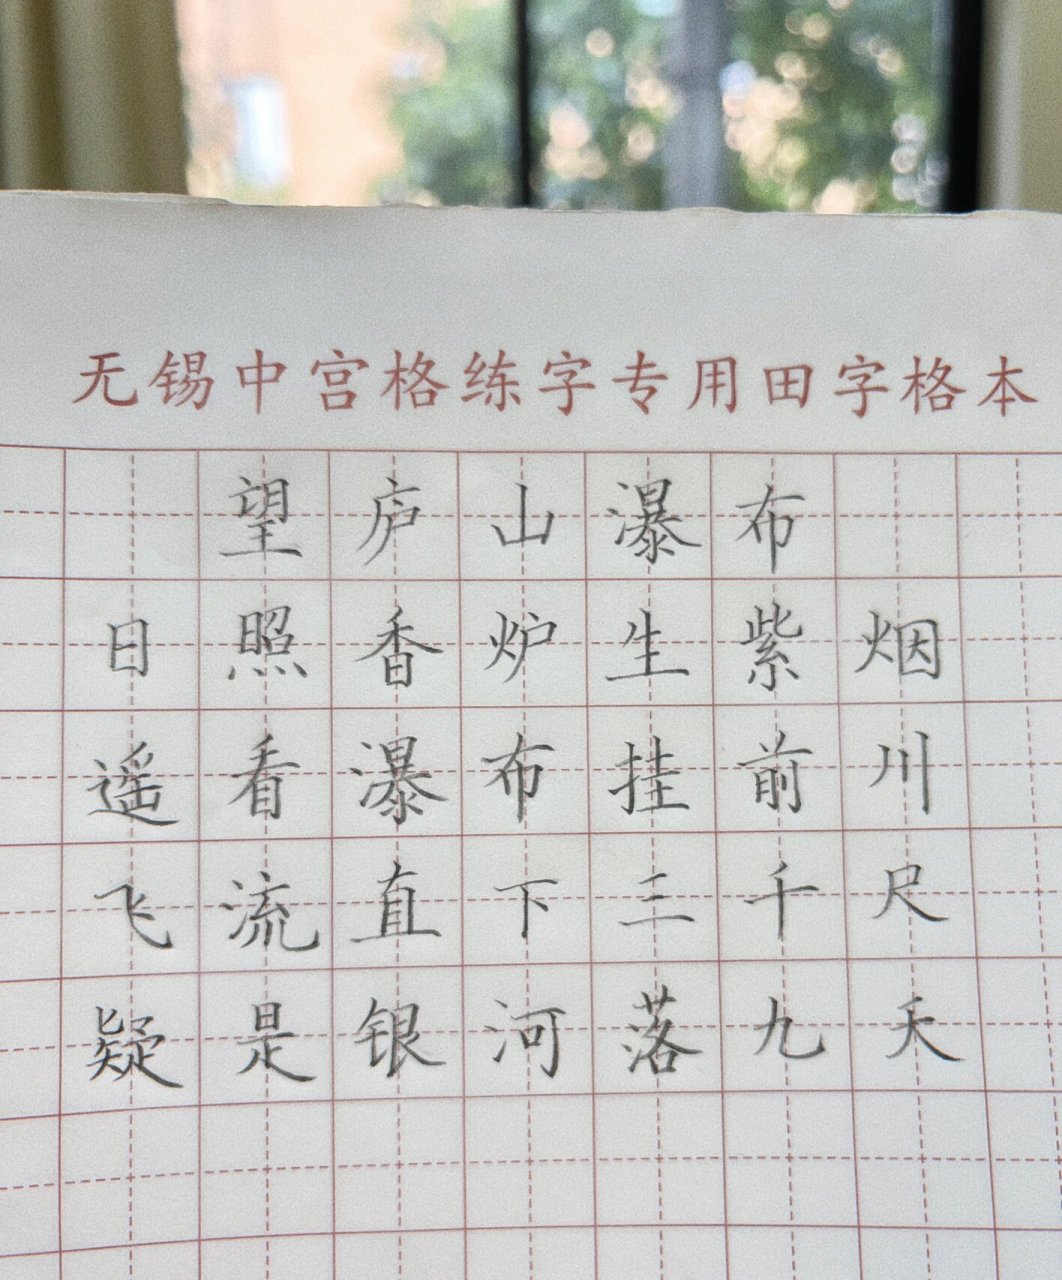 无锡中宫格练字专用田字格本
望庐山瀑布
日照香炉生紫烟
遥看瀑布挂前川
飞流直下三千尺
疑是银河落九天